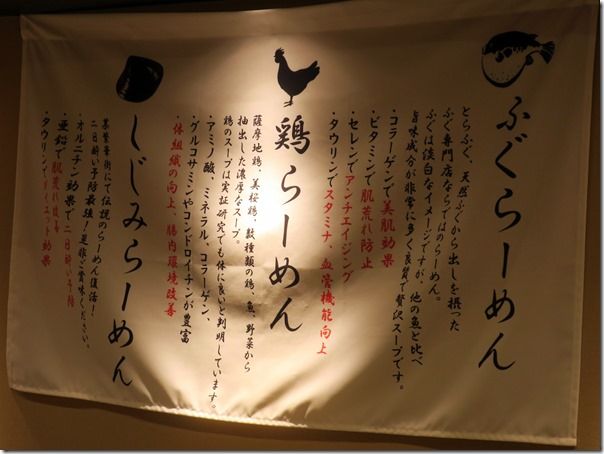 ふぐらーめん
とらふぐ、天然ふぐから出しを摂った
ふぐ専門店ならではのらーめん。
ふぐは淡白なイメージですが、他の魚と比べ
旨味成分が非常に多く良質で贅沢スープです。
・コラーゲンで美肌効果
・ビタミンで肌荒れ防止
・セレンでアンチエイジング
・タウリンでスタミナ、血管機能向上
鶏らーめん
薩摩地鶏、美桜鶏・数種類の鶏、魚、野菜から
抽出した濃厚なスープ。
鶏のスープは実証研究でも体に良いと判明しています。
・アミノ酸、ミネラル、コラーゲン、
・グルコサミンやコンドロイチンが豊富
・体組織の向上、腸内環境改善
しじみらーめん
某繁華街にて伝説のらーめん復活！
二日酔い予防最強！是非ご賞味ください。
・オルニチン効果で二日酔い予防
・亜鉛で肌荒れ改善
・タウリンでダイエット効果